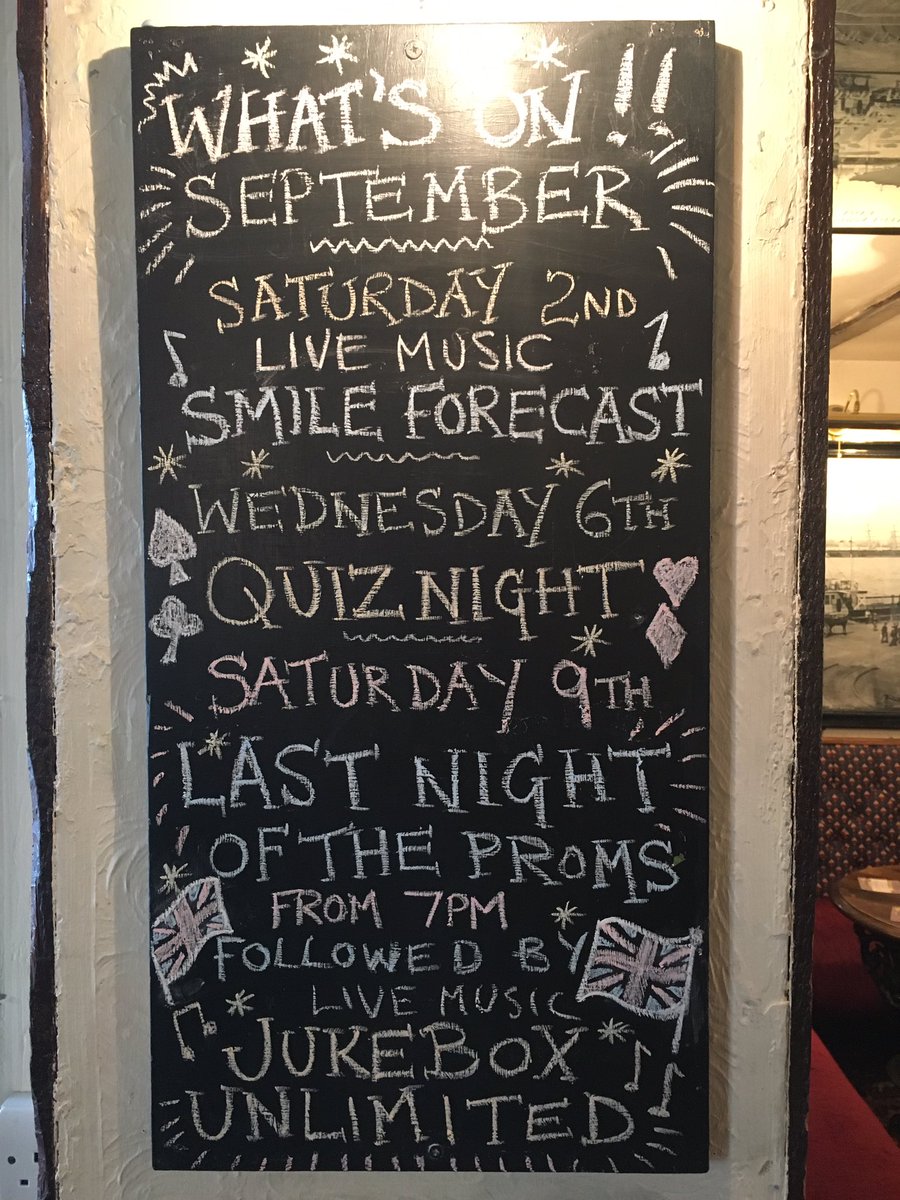 WHAT'S ON!!
SEPTEMBER
SATURDAY 2ND
LIVE MUSIC
SMILE FORECAST
WEDNESDAY 6TH
QUIZ NIGHT
SATURDAY 9TH
LAST NIGHT
OF THE PROMS
FROM 7PM
FOLLOWED BY
LIVE MUSIC
JUKEBOX
UNLIMITED